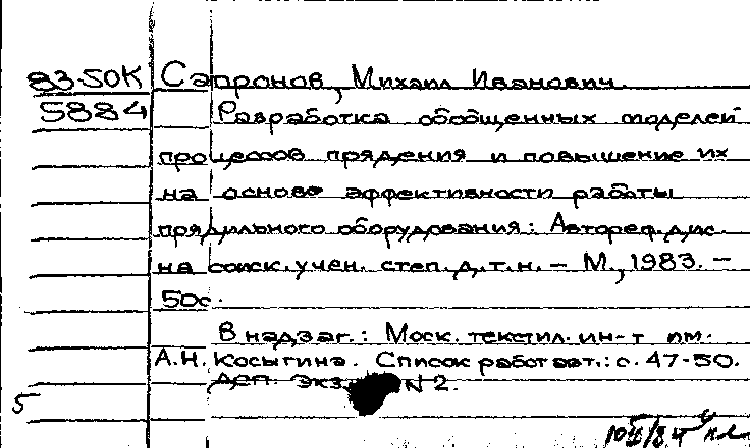 83-50К Сапронов, Михаил Иванович.
5884 Разработка обобщенных моделей
процессов прядения и повышение их
на основе эффективности работы
прядильного оборудования: Автореф. дис.
на соиск. учен. степ. д.т.н. – М., 1983. –
50с.
В надзаг.: Моск. текстил. ин-т им.
А.Н. Косыгина. Список работ авт.: с. 47-50.
Деп. экз. N2.
5